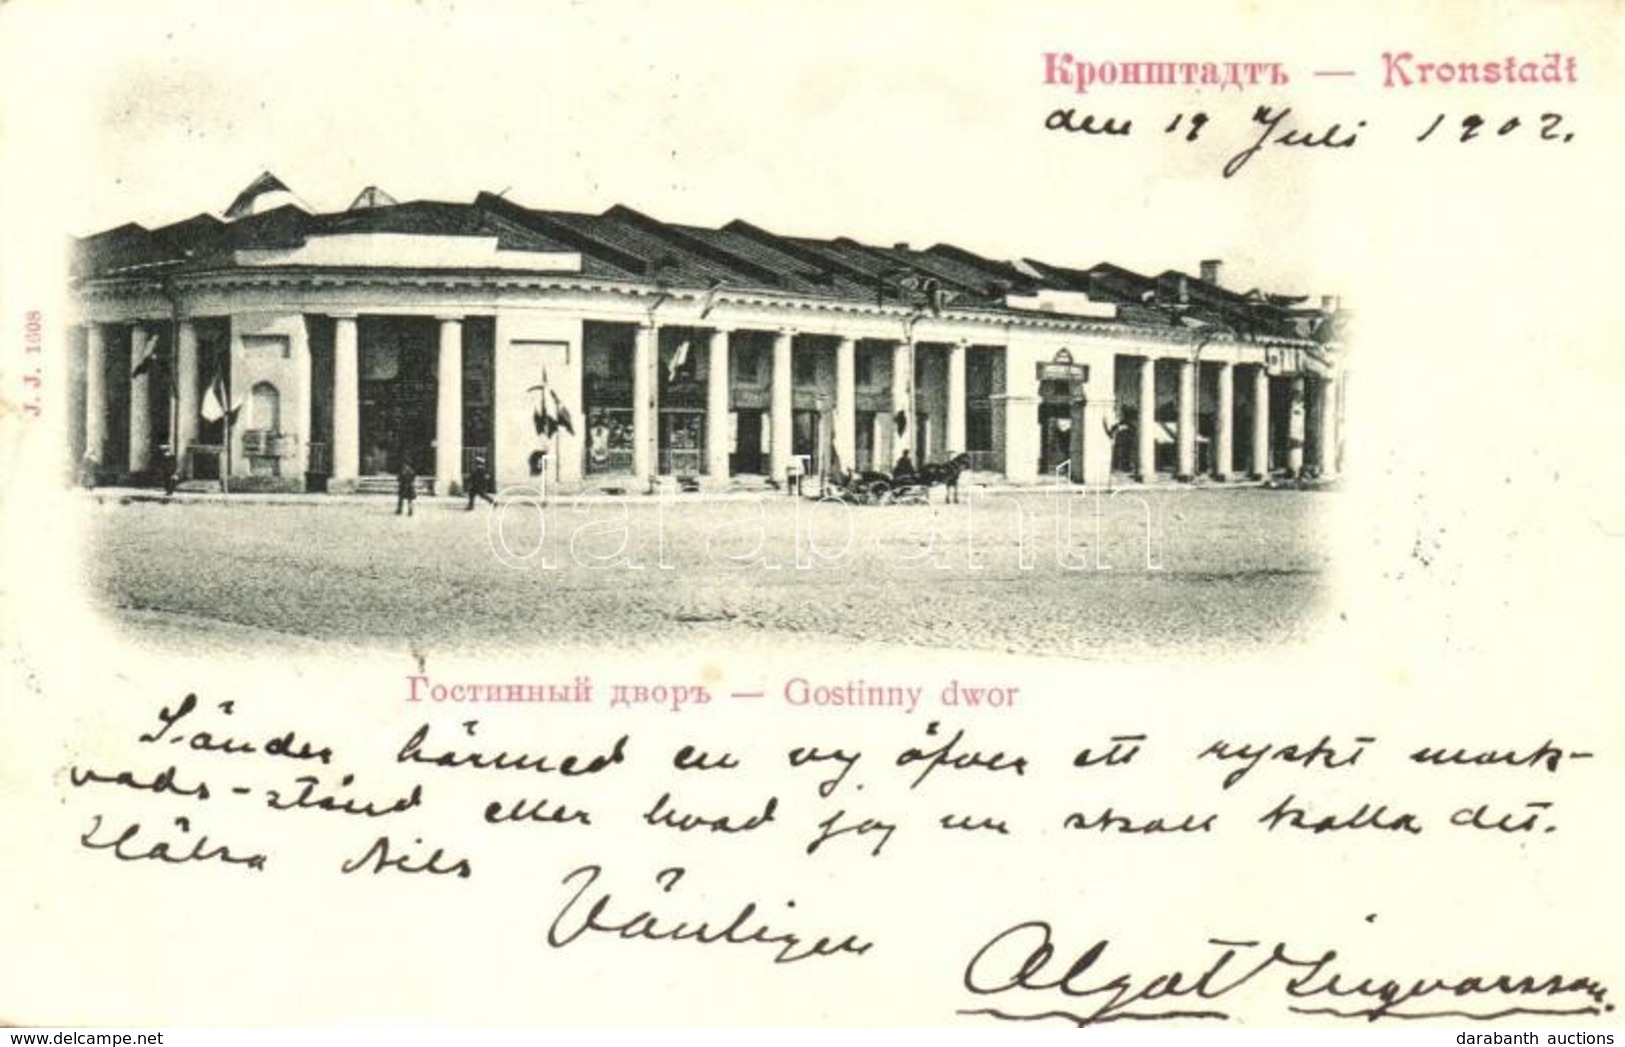 Кронштадтъ — Kronstadt
den 19 Juli 1902.
J. J. 1608
databanth
Гостинный дворъ — Gostinny dwor
Sänder härmed en vy öfver ett ryskt mark-
nads-stånd eller hvad jag nu skall kalla det.
Hälsa Nils
Vänligen
Algot Ingvarsson.
darabanth auctions